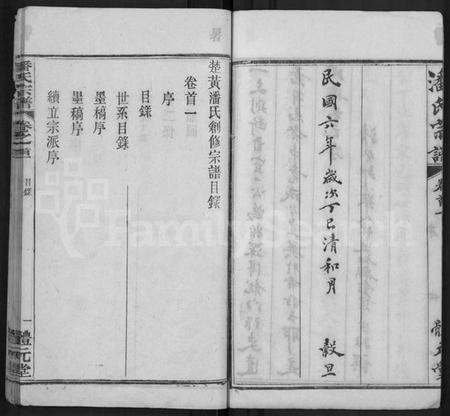 潘氏宗譜
卷首一
體元堂
民國六年歲次丁巳清和月
穀旦
楚黃潘氏創修宗譜目錄
卷首一
序
目錄
世系目錄
墨稿序
墨稿序
續立宗派序
潘氏宗譜
卷之首
目錄
一
體元堂
FamilySearch